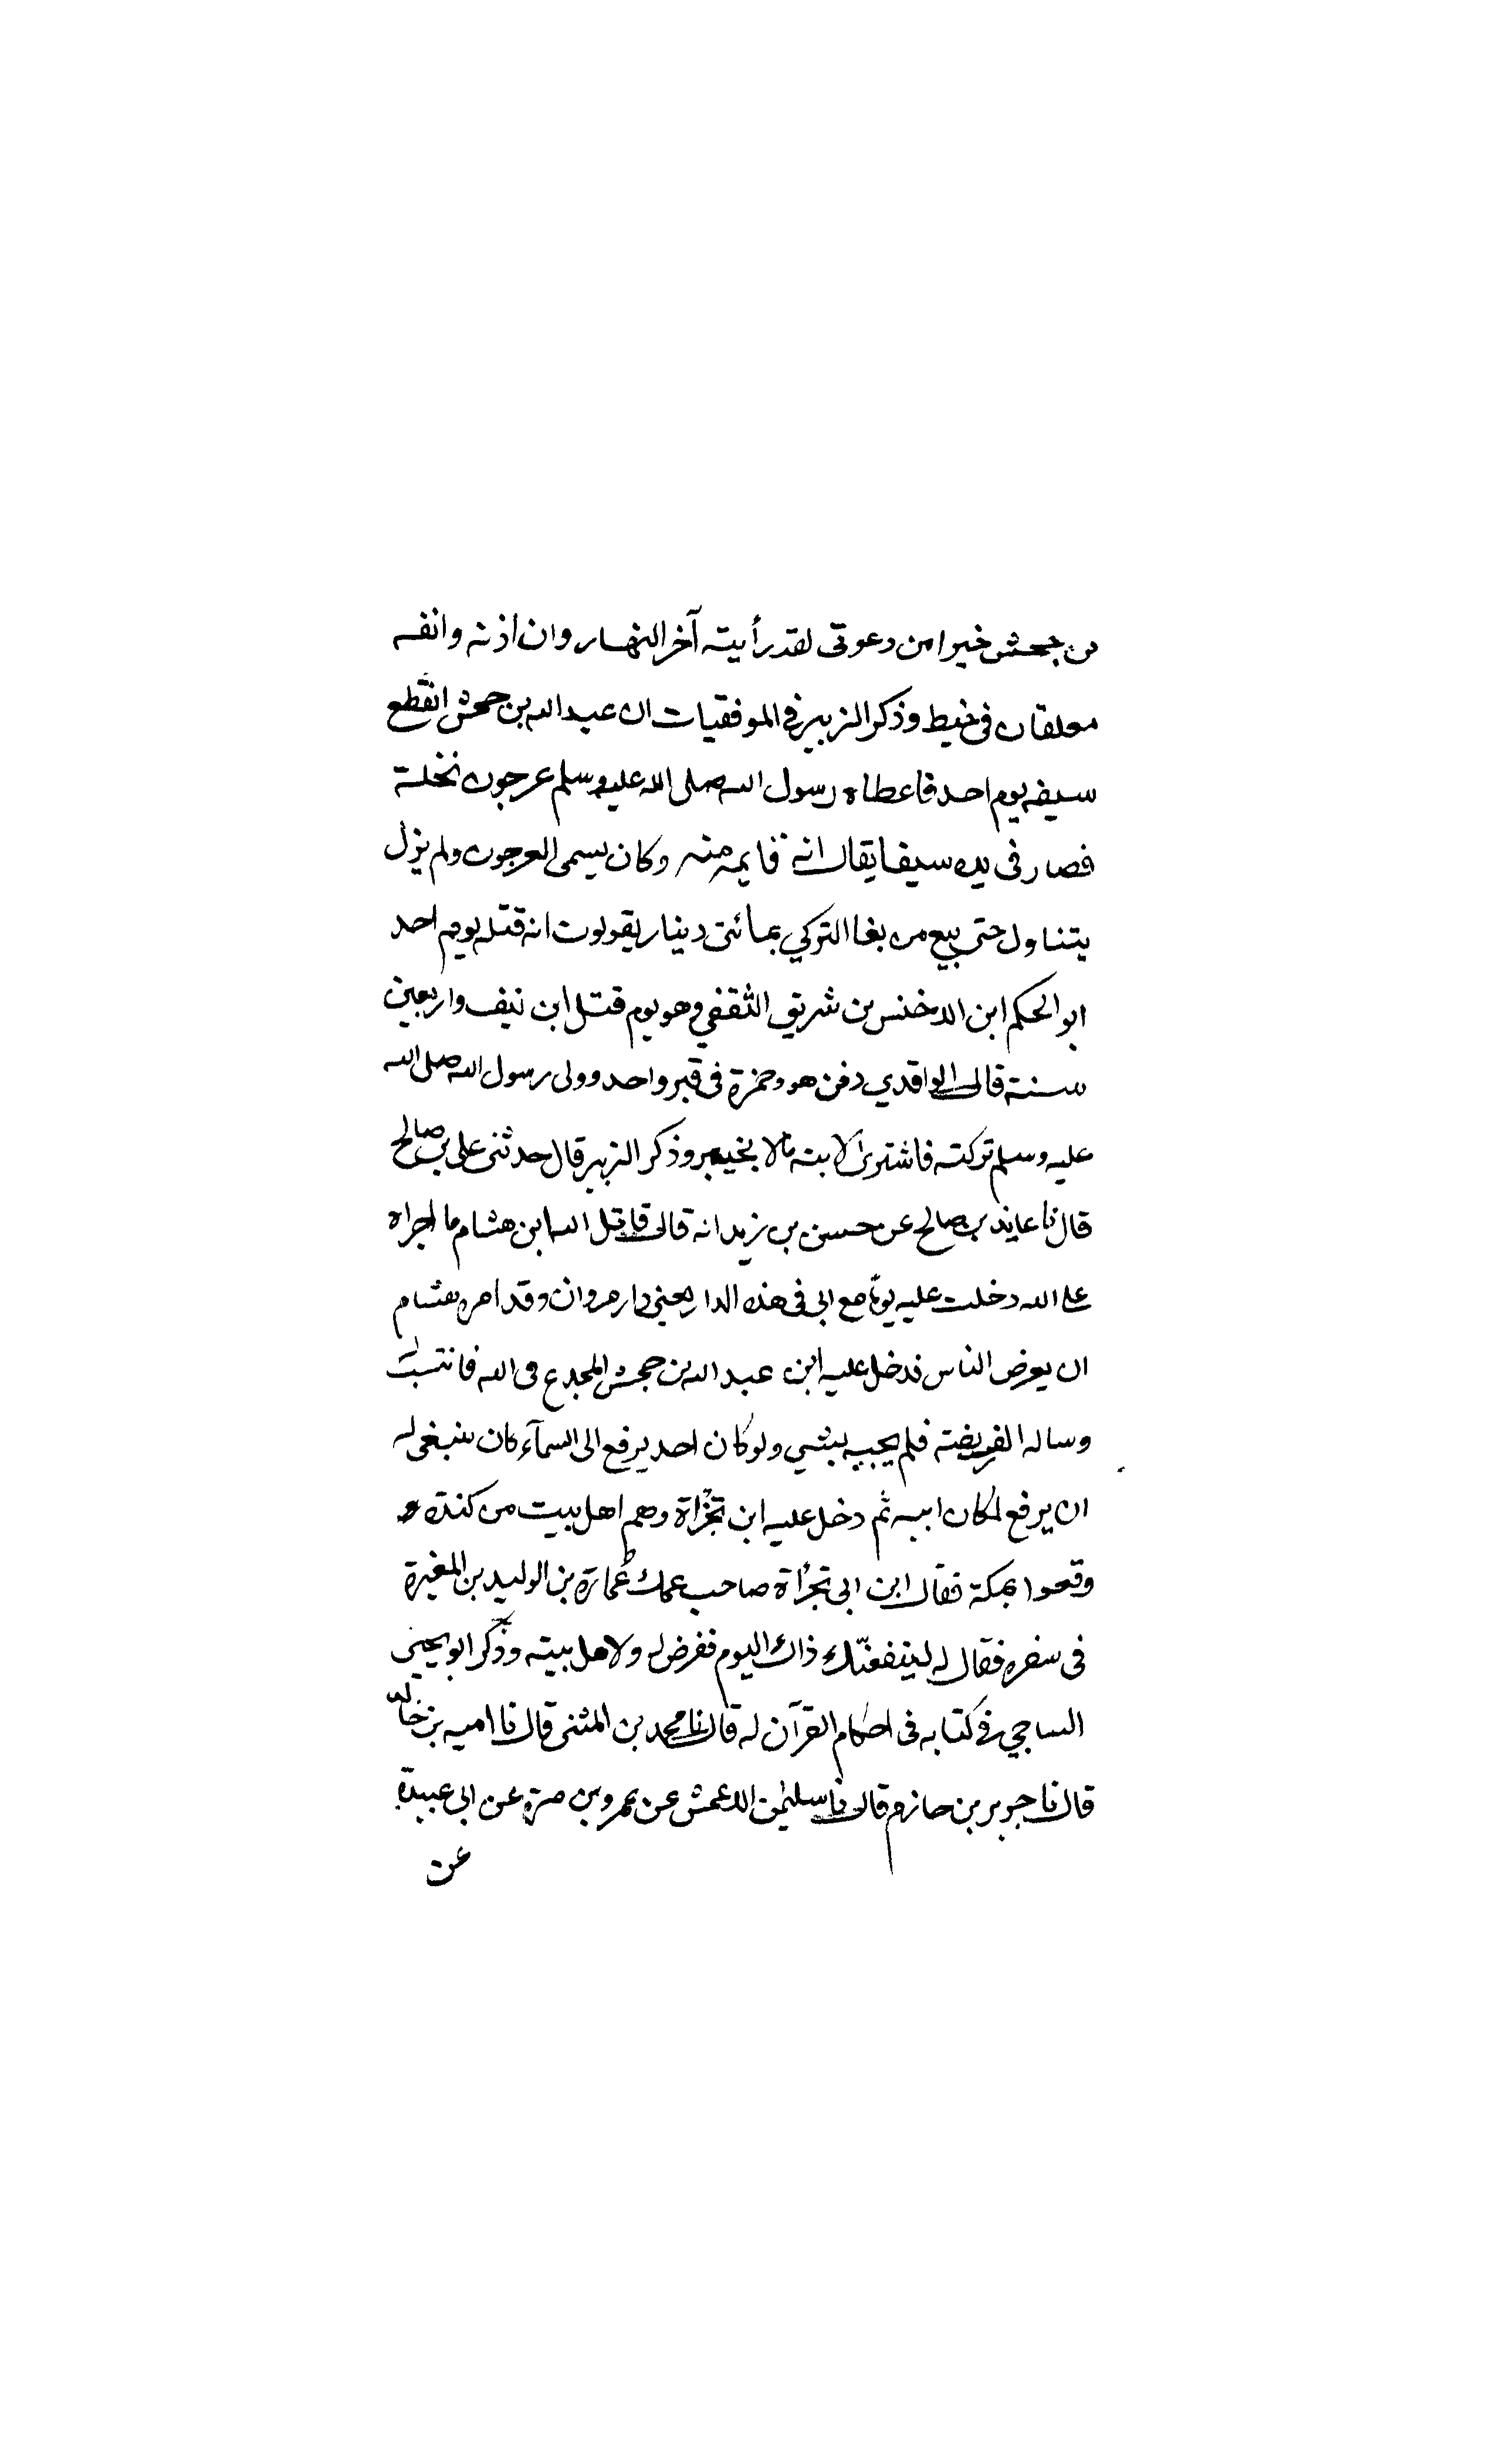 بن جحش خيرا من دعوتى لقد رأيته آخر النهار وان أذنه وانفه
معلقان فى خيط وذكر الزبير فى الموفقيات ان عبد الله بن جحش انقطع
سيفه يوم احد فاعطاه رسول الله صلى الله عليه وسلم عرجون نخلة
فصار فى يده سيفا يقال انه قايمه منه وكان يسمى العرجون ولم يزل
يتناول حتى بيع من بغا التركي بمائتى دينار يقولون انه قتله يوم احد
ابو الحكم ابن الاخنس بن شريق الثقفي وهو يوم قتل ابن نيف واربعين
سنة قال الواقدي دفن هو وحمزة فى قبر واحد وولى رسول الله صلى الله
عليه وسلم تركته فاشترى لابنه مالا بخيبر وذكر الزبير قال حدثنى على بن صالح
قال نا عايذ بن صالح عن حسن بن زيد انه قال قاتل الله ابن هشام ما اجراه
على الله دخلت عليه يوما مع ابى فى هذه الدار يعنى دار مروان وقد امره هشام
ان يعرض الناس فدخل عليه ابن عبد الله بن جحش المجدع فى الله فانتسب
وساله الفريضة فلم يجبه بشي ولو كان احد يرفع الى السمآء كان ينبغى له
ان يرفع لمكان ابيه ثم دخل عليه ابن تجزأة وهم اهل بيت من كندة و
وقعوا بمكة فقال ابن ابى تجرأة صاحب عمك عُمارة بن الوليد بن المغيرة
فى سفره فقال له لينفعنّك ذاك اليوم ففرض له ولاهل بيته وذكر ابو يحيى
الساجي فى كتابه فى احكام القرآن له قال نا محمد بن المثنى قال نا امية بن خالد
قال نا جرير بن حازم قال نا سليمن الاعمش عن عمرو بن مرة عن ابى عبيدة
عن